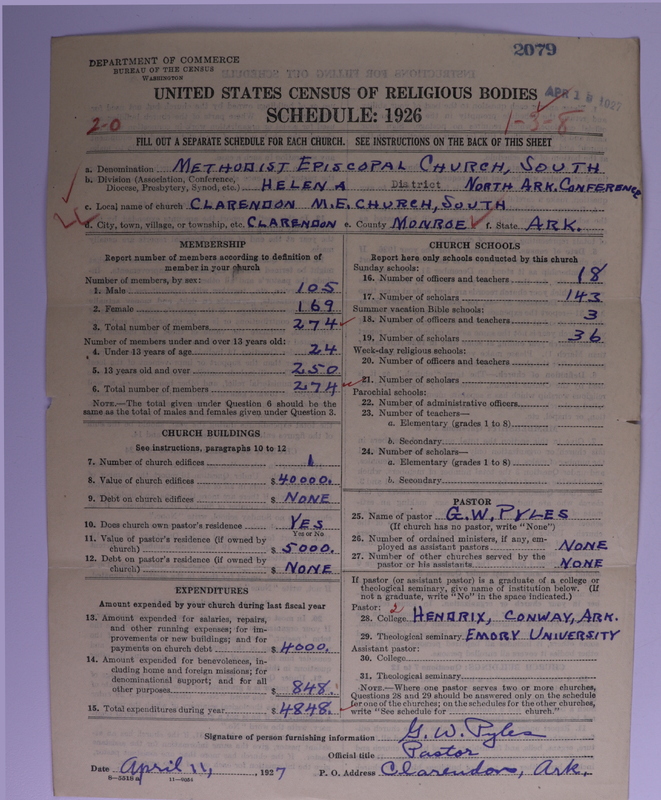 2079
DEPARTMENT OF COMMERCE
BUREAU OF THE CENSUS
WASHINGTON
APR 15 1927
UNITED STATES CENSUS OF RELIGIOUS BODIES
SCHEDULE: 1926
2-0
1-3-8
FILL OUT A SEPARATE SCHEDULE FOR EACH CHURCH. SEE INSTRUCTIONS ON THE BACK OF THIS SHEET
a. Denomination METHODIST EPISCOPAL CHURCH, SOUTH
b. Division (Association, Conference, Diocese, Presbytery, Synod, etc.) HELENA District NORTH ARK. CONFERENCE
c. Local name of church CLARENDON M.E. CHURCH, SOUTH
d. City, town, village, or township, etc. CLARENDON e. County MONROE f. State ARK.
MEMBERSHIP
Report number of members according to definition of
member in your church
Number of members, by sex:
1. Male 105
2. Female 169
3. Total number of members 274
Number of members under and over 13 years old:
4. Under 13 years of age 24
5. 13 years old and over 250
6. Total number of members 274
NOTE.—The total given under Question 6 should be the
same as the total of males and females given under Question 3.
CHURCH BUILDINGS
See instructions, paragraphs 10 to 12
7. Number of church edifices 1
8. Value of church edifices $40000.
9. Debt on church edifices $NONE
10. Does church own pastor's residence YES
Yes or No
11. Value of pastor's residence (if owned by
church) $5000.
12. Debt on pastor's residence (if owned by
church) $NONE
EXPENDITURES
Amount expended by your church during last fiscal year
13. Amount expended for salaries, repairs,
and other running expenses; for im-
provements or new buildings; and for
payments on church debt $4000.
14. Amount expended for benevolences, in-
cluding home and foreign missions; for
denominational support; and for all
other purposes $848.
15. Total expenditures during year $4848.
CHURCH SCHOOLS
Report here only schools conducted by this church
Sunday schools:
16. Number of officers and teachers 18
17. Number of scholars 143
Summer vacation Bible schools:
18. Number of officers and teachers 3
19. Number of scholars 36
Week-day religious schools:
20. Number of officers and teachers
21. Number of scholars
Parochial schools:
22. Number of administrative officers
23. Number of teachers—
a. Elementary (grades 1 to 8)
b. Secondary
24. Number of scholars—
a. Elementary (grades 1 to 8)
b. Secondary
PASTOR
25. Name of pastor G.W. PYLES
(If church has no pastor, write "None")
26. Number of ordained ministers, if any, em-
ployed as assistant pastors NONE
27. Number of other churches served by the
pastor or his assistants NONE
If pastor (or assistant pastor) is a graduate of a college or
theological seminary, give name of institution below. (If
not a graduate, write "No" in the space indicated.)
Pastor: 2
28. College HENDRIX, CONWAY, ARK.
29. Theological seminary EMORY UNIVERSITY
Assistant pastor:
30. College
31. Theological seminary
NOTE.—Where one pastor serves two or more churches,
Questions 28 and 29 should be answered only on the schedule
for one of the churches; on the schedules for the other churches,
write "See schedule for ........ church."
Signature of person furnishing information G. W. Pyles
Official title Pastor
Date April 11, 1927 P. O. Address Clarendon, Ark.